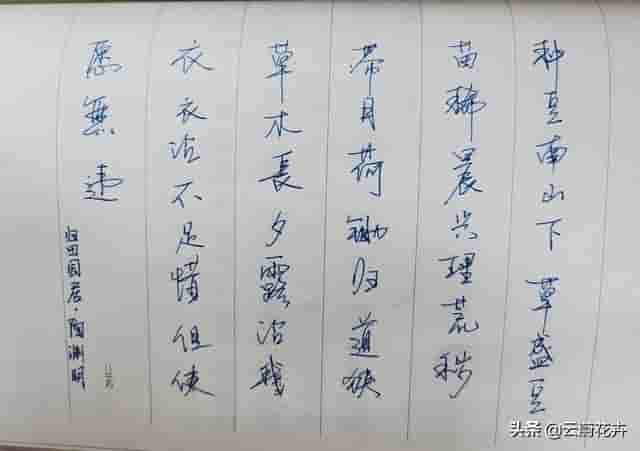 种豆南山下 草盛豆
苗稀晨兴理荒秽
带月荷锄归道狭
草木長夕露沾我
衣衣沾不足惜但使
愿無违
归田园居·陶渊明
头条 @云厨花卉